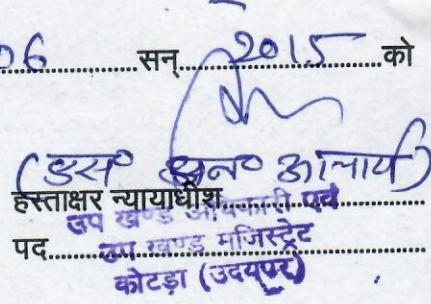 06 सन् 2015 को
(एस० एन० आचार्य)
हस्ताक्षर न्यायाधीश
उप खण्ड अधिकारी एवं
पद उप खण्ड मजिस्ट्रेट
कोटड़ा (उदयपुर)